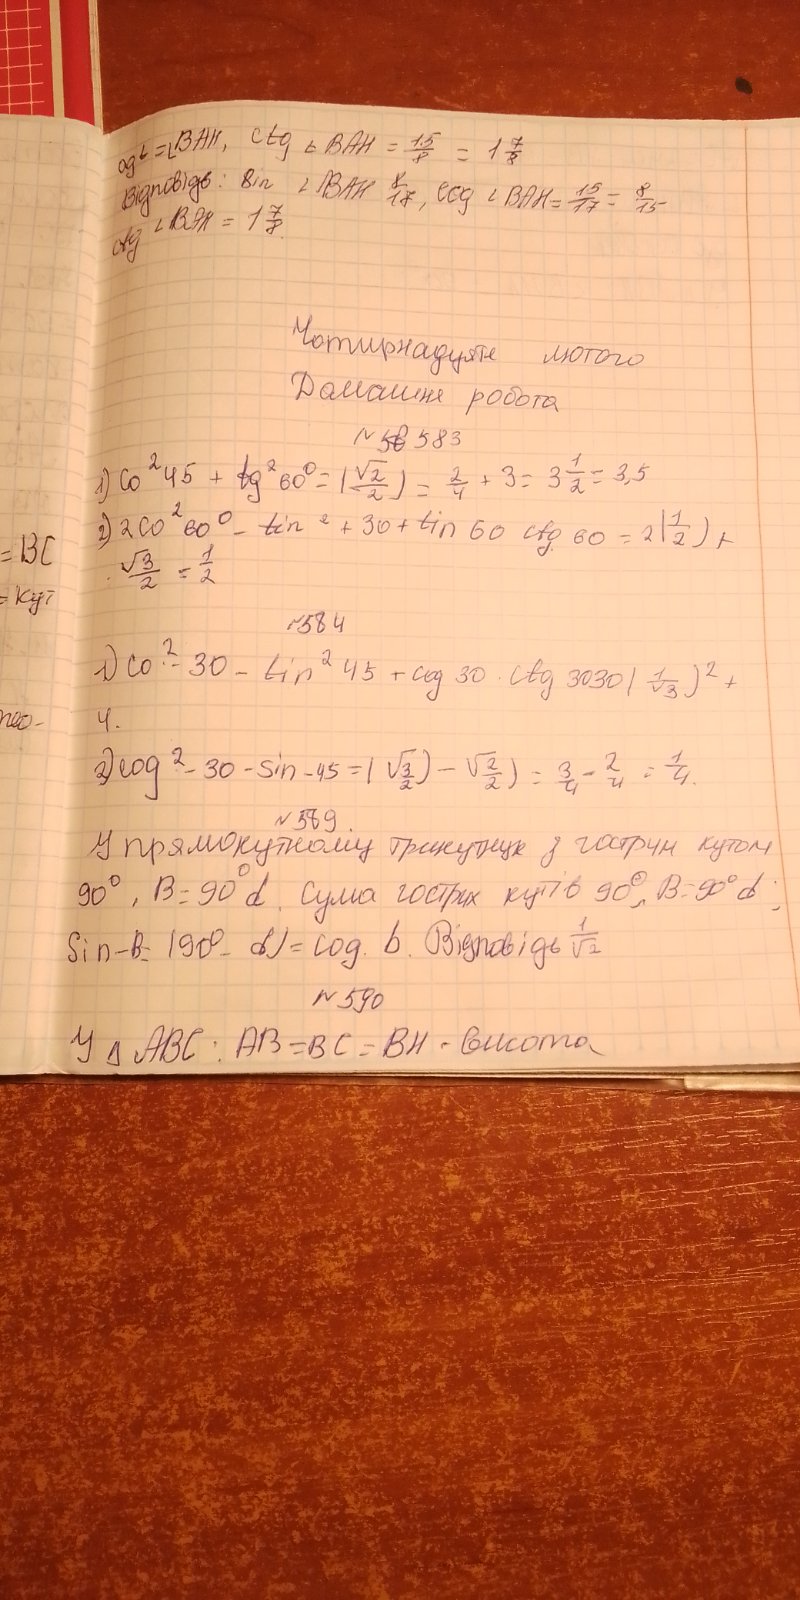 ∠BAH, ctg ∠BAH = 15/8 = 1 7/8
Відповідь: sin ∠BAH 8/17, cog ∠BAH = 15/17 = 8/15
ctg ∠BAH = 1 7/8.
Чотирнадцяте лютого
Домашнє робота
№ 583
1) Co² 45 + tg² 60° = (√2/2) = 2/4 + 3 = 3 1/2 = 3,5
2) 2Co² 60° - tin² + 30 + tin 60 ctg. 60 = 2(1/2) +
√3/2 = 1/2
№584
1) Co² - 30 - tin² 45 + cog 30 · ctg 3030 (1/√3)² +
4.
2) cog² - 30 - sin - 45 = (√3/2) - √2/2) = 3/4 - 2/4 = 1/4.
№589.
У прямокутному трикутнику з гострим кутом
90°, B = 90° α. Сума гострих кутів 90°, B = 90° α;
Sin - B = (90° - α) = cog. b. Відповідь 1/√2
№590
У △ ABC: AB = BC = BH - висота
= BC
= кут